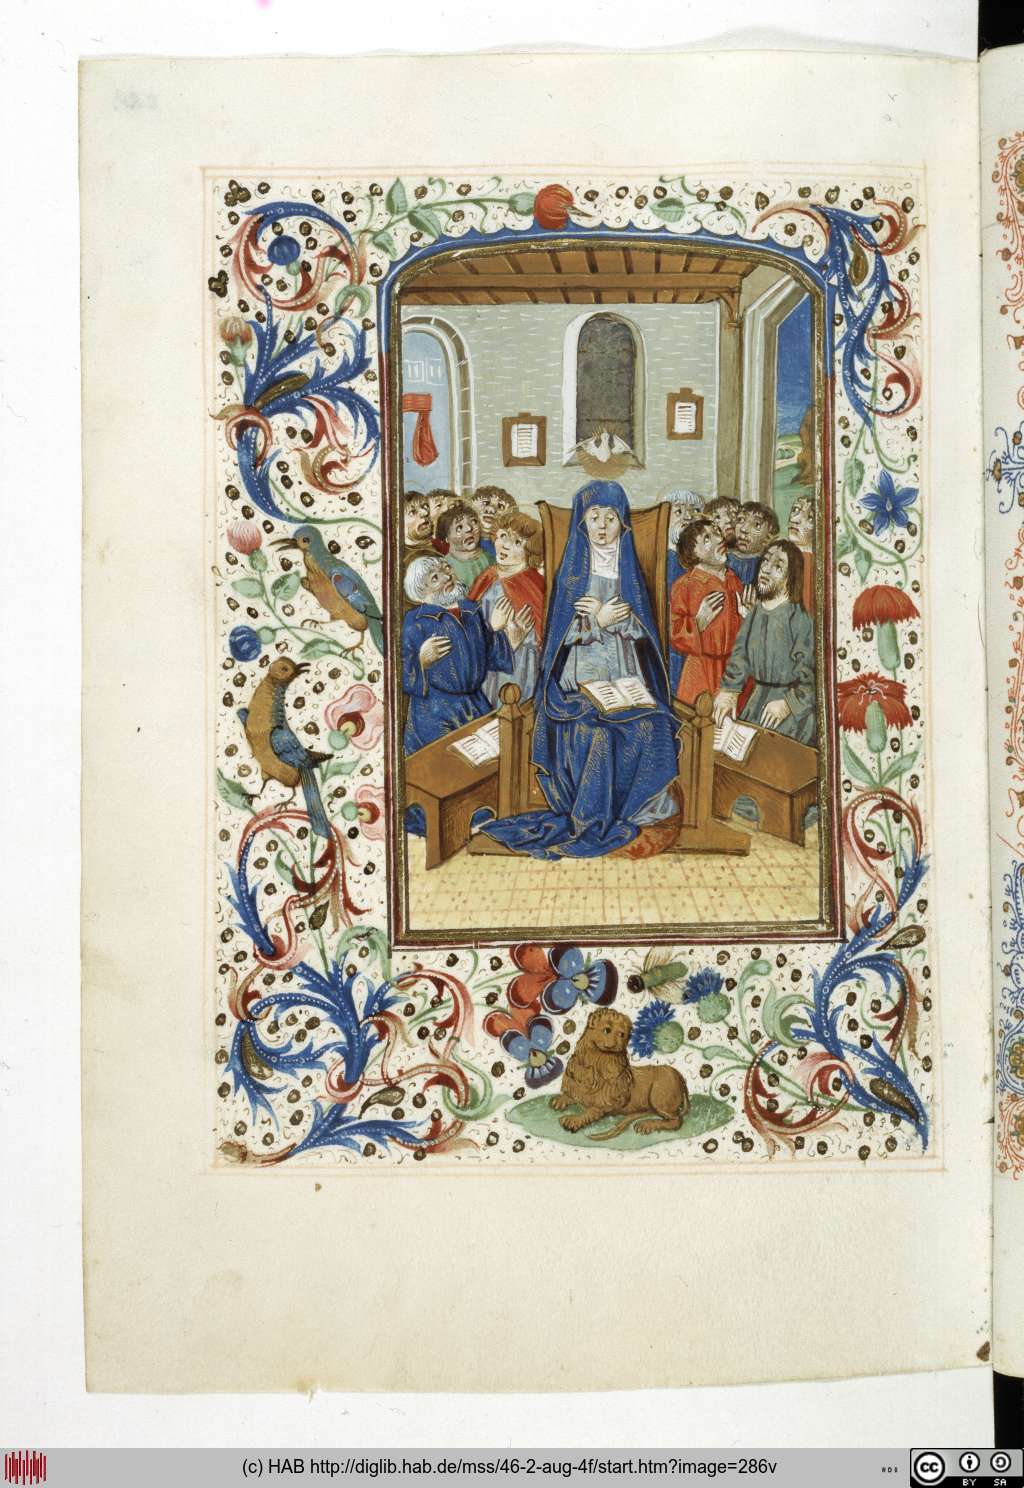 (c) HAB http://diglib.hab.de/mss/46-2-aug-4f/start.htm?image=286v
cc
BY SA